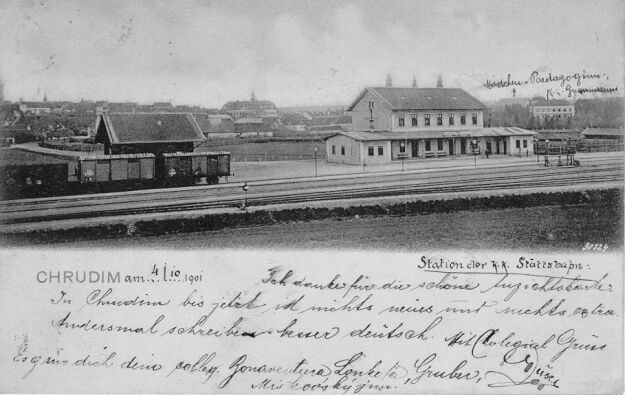 Mädchen-Pädagogium
k.k. Gymnasium
30724
Station der k.k. Staatsbahn:
CHRUDIM am 4/10 1901
Ich danke für die schöne Ansichtskarte
In Chrudim bis jetzt ist nichts neues und nichts extra.
Andersmal schreiben besser deutsch. Mit Colegial Gruss
Es grüs dich dein colleg. Bonaventura Gruber,